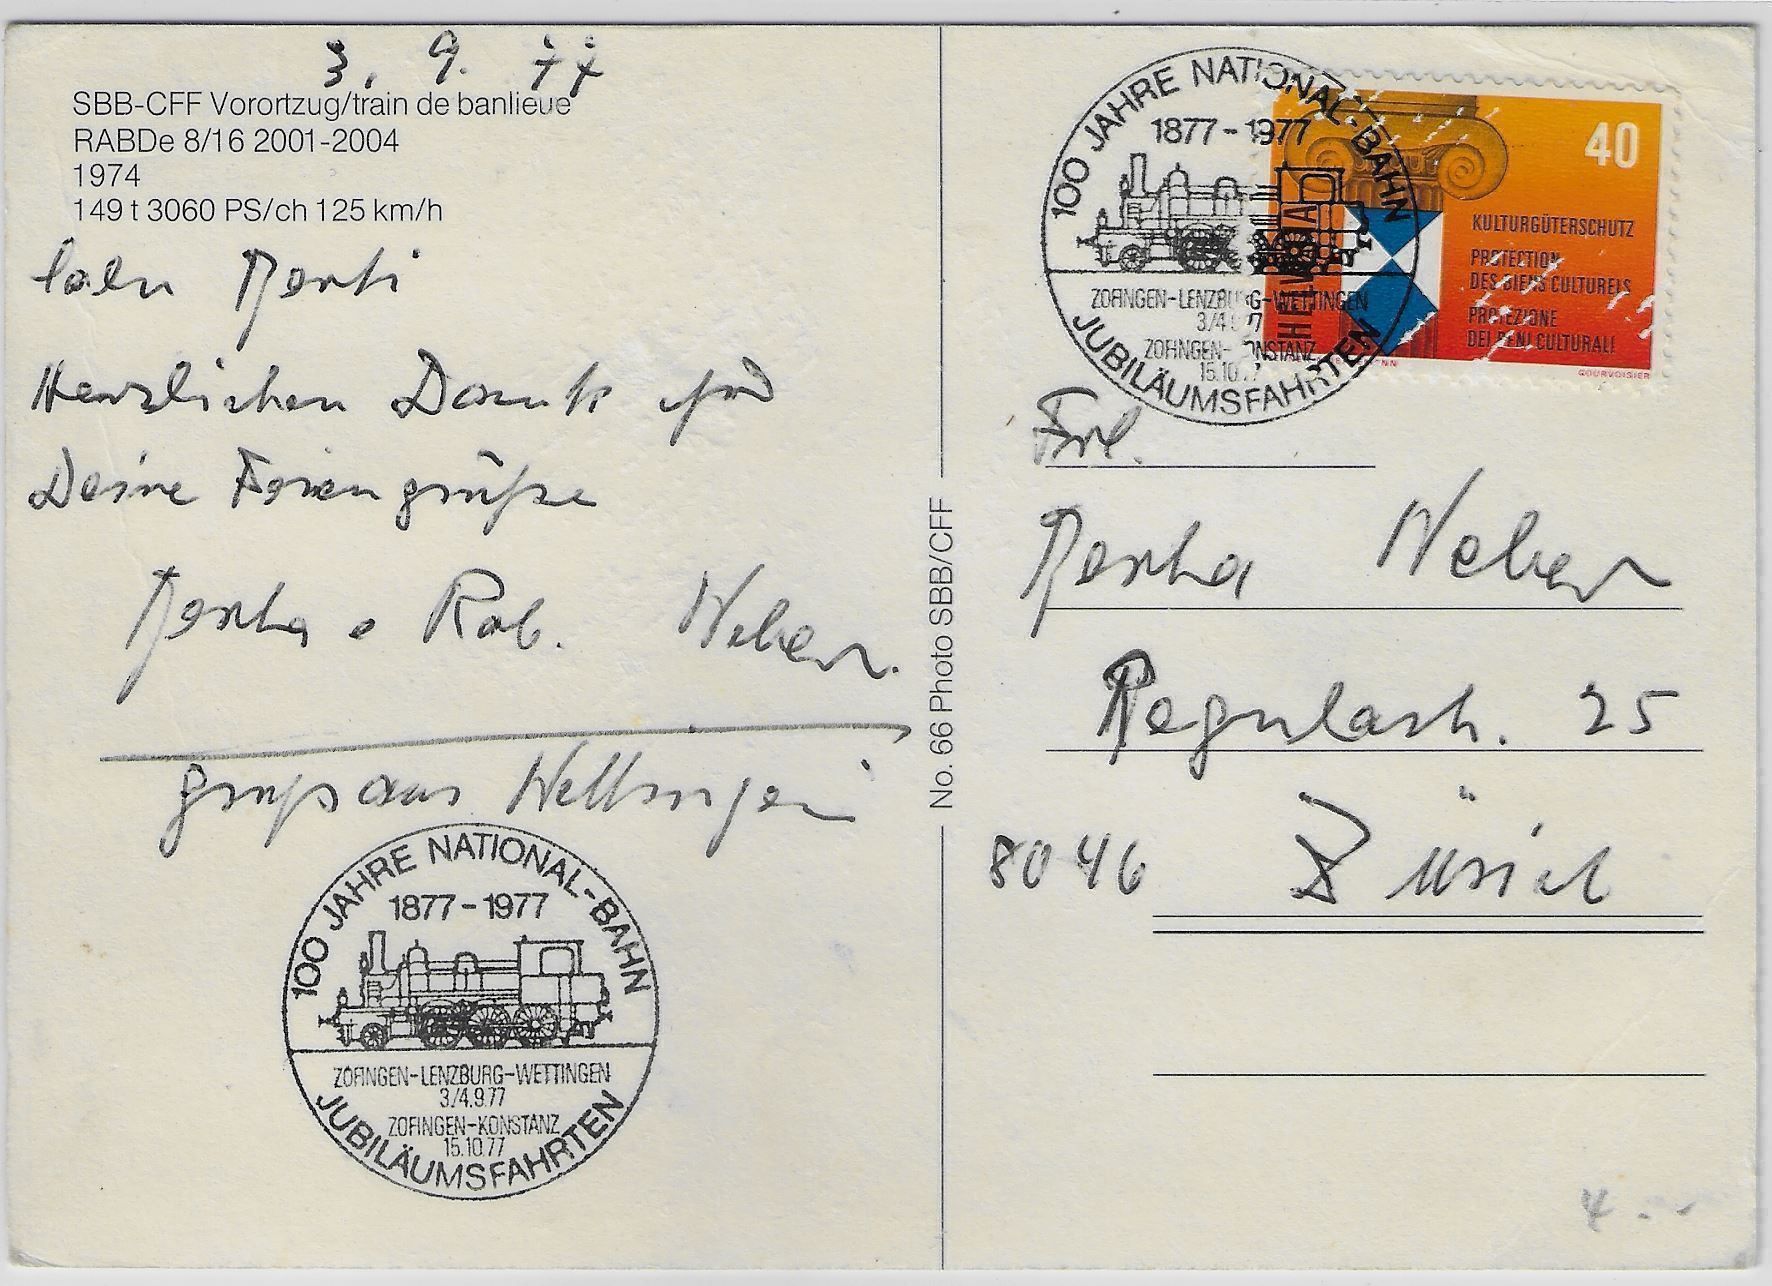 3. 9. 77
SBB-CFF Vorortzug/train de banlieue
RABDe 8/16 2001-2004
1974
149 t 3060 PS/ch 125 km/h
Herzlichen Dank für
Deine Feriengrüße
Bertha + Rob. Weber.
gruß aus Wettingen
100 JAHRE NATIONAL-BAHN
1877-1977
ZOFINGEN-LENZBURG-WETTINGEN
3./4.9.77
ZOFINGEN-KONSTANZ
15.10.77
JUBILÄUMSFAHRTEN
No. 66 Photo SBB/CFF
100 JAHRE NATIONAL-BAHN
1877-1977
ZOFINGEN-LENZBURG-WETTINGEN
3./4.9.77
ZOFINGEN-KONSTANZ
15.10.77
JUBILÄUMSFAHRTEN
HELVETIA
40
KULTURGÜTERSCHUTZ
PROTECTION
DES BIENS CULTURELS
PROTEZIONE
DEI BENI CULTURALI
COURVOISIER
Frl.
Bertha Weber
Regulastr. 25
8046 Zürich
4.--